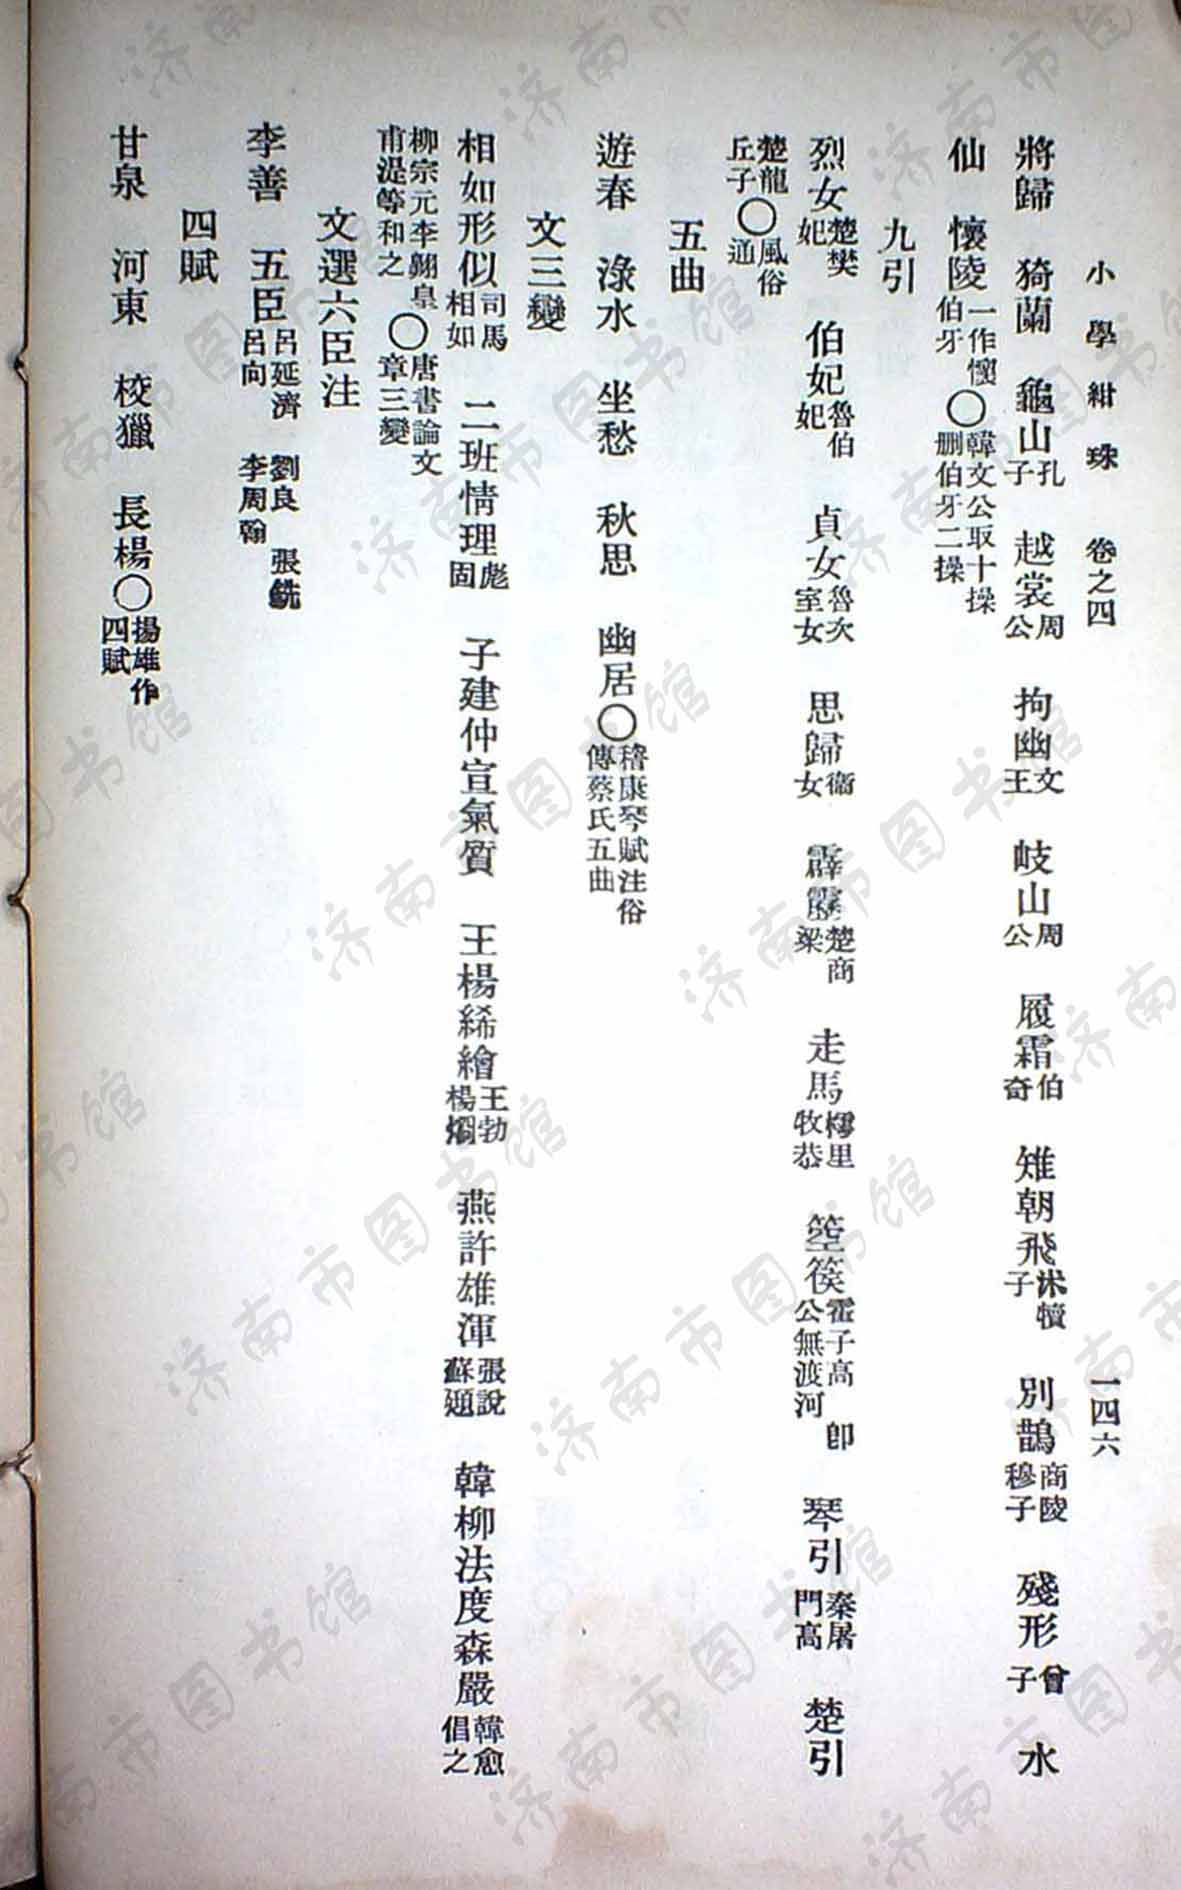 小學紺珠 卷之四 一四六
將歸 猗蘭 龜山孔子 越裳周公 拘幽文王 岐山周公 履霜伯奇 雉朝飛沐犢子 別鵠商陵穆子 殘形曾子 水
仙 懷陵一作懷伯牙〇韓文公取十操删伯牙二操
九引
烈女楚樊妃 伯妃魯伯妃 貞女魯次室女 思歸衞女 霹靂楚商梁 走馬樗里牧恭 箜篌霍子高 卽公無渡河 琴引秦屠門高 楚引
楚龍丘子〇風俗通
五曲
遊春 淥水 坐愁 秋思 幽居〇稽康琴賦注俗傳蔡氏五曲
文三變
相如形似司馬相如 二班情理彪固 子建仲宣氣質 王楊絺繪王勃楊烱 燕許雄渾張說蘇頲 韓柳法度森嚴韓愈倡之
柳宗元李翺皇甫湜等和之〇唐書論文章三變
文選六臣注
李善 五臣呂延濟 劉良 張銑 呂向 李周翰
四賦
甘泉 河東 校獵 長楊〇揚雄作四賦
济南市图书馆